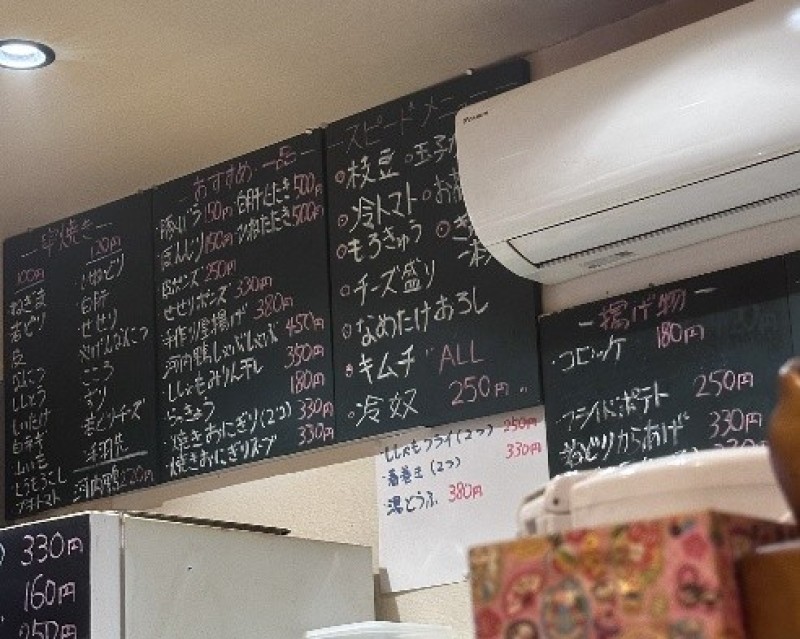 串焼き
100円 120円
ねぎま
若どり 白肝
皮 せせり
なんこつ やげんなんこつ
ししとう こころ
しいたけ ずり
白ネギ 若どりチーズ
山いも 手羽先
とうもろこし
プチトマト 河内鴨220円
おすすめ 一品
豚バラ150円 白肝たたき500円
ぼんじり150円 ひねたたき500円
皮ポンズ250円
せせりポンズ330円
手作り厚揚げ380円
河内鴨しゃぶしゃぶ450円
ししゃもみりん干し350円
らっきょう180円
焼きおにぎり(2つ)330円
焼きおにぎりスープ330円
スピードメニュ
枝豆 玉子
冷トマト お
もろきゅう
チーズ盛り
なめたけおろし
キムチ ALL
冷奴 250円
揚げ物
コロッケ 180円
フライドポテト 250円
若どりからあげ 330円
ししゃもフライ(2つ) 250円
春巻き(2つ) 330円
湯どうふ 380円
330円
160円
250円